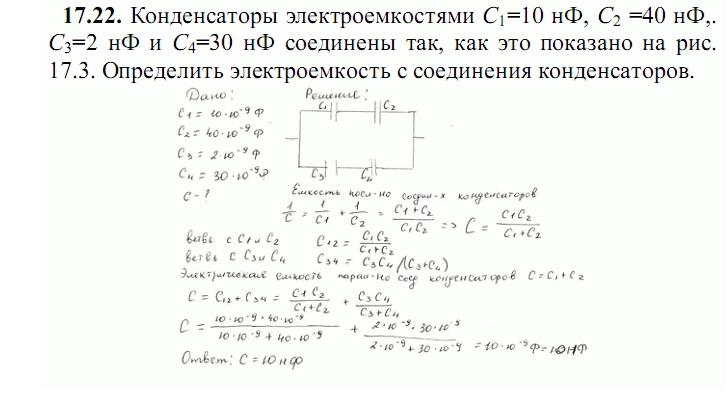 17.22. Конденсаторы электроемкостями C₁=10 нФ, C₂ =40 нФ,.
C₃=2 нФ и C₄=30 нФ соединены так, как это показано на рис.
17.3. Определить электроемкость с соединения конденсаторов.
Дано: Решение:
C1 = 10·10⁻⁹ Ф
C₂ = 40·10⁻⁹ Ф
C₃ = 2·10⁻⁹ Ф
C₄ = 30·10⁻⁹ Ф
C - ?
C₁ C₂
C₃ C₄
Емкость посл-но соедин-х конденсаторов
1/C = 1/C1 + 1/C₂ = (C1+C₂)/(C₁C₂) => C = (C1C₂)/(C₁+C₂)
ветвь с C1 и C₂ C₁₂ = (C₁C₂)/(C₁+C₂)
ветвь с C₃ и C₄ C₃₄ = C₃C₄/(C₃+C₄)
Электрическая емкость парал-но соед конденсаторов C=C₁+C₂
C = C₁₂ + C₃₄ = (C1C₂)/(C₁+C₂) + (C₃C₄)/(C₃+C₄)
C = (10·10⁻⁹·40·10⁻⁹)/(10·10⁻⁹+40·10⁻⁹) + (2·10⁻⁹·30·10⁻⁹)/(2·10⁻⁹+30·10⁻⁹) = 10·10⁻⁹Ф=10НФ
Ответ: C = 10 нФ